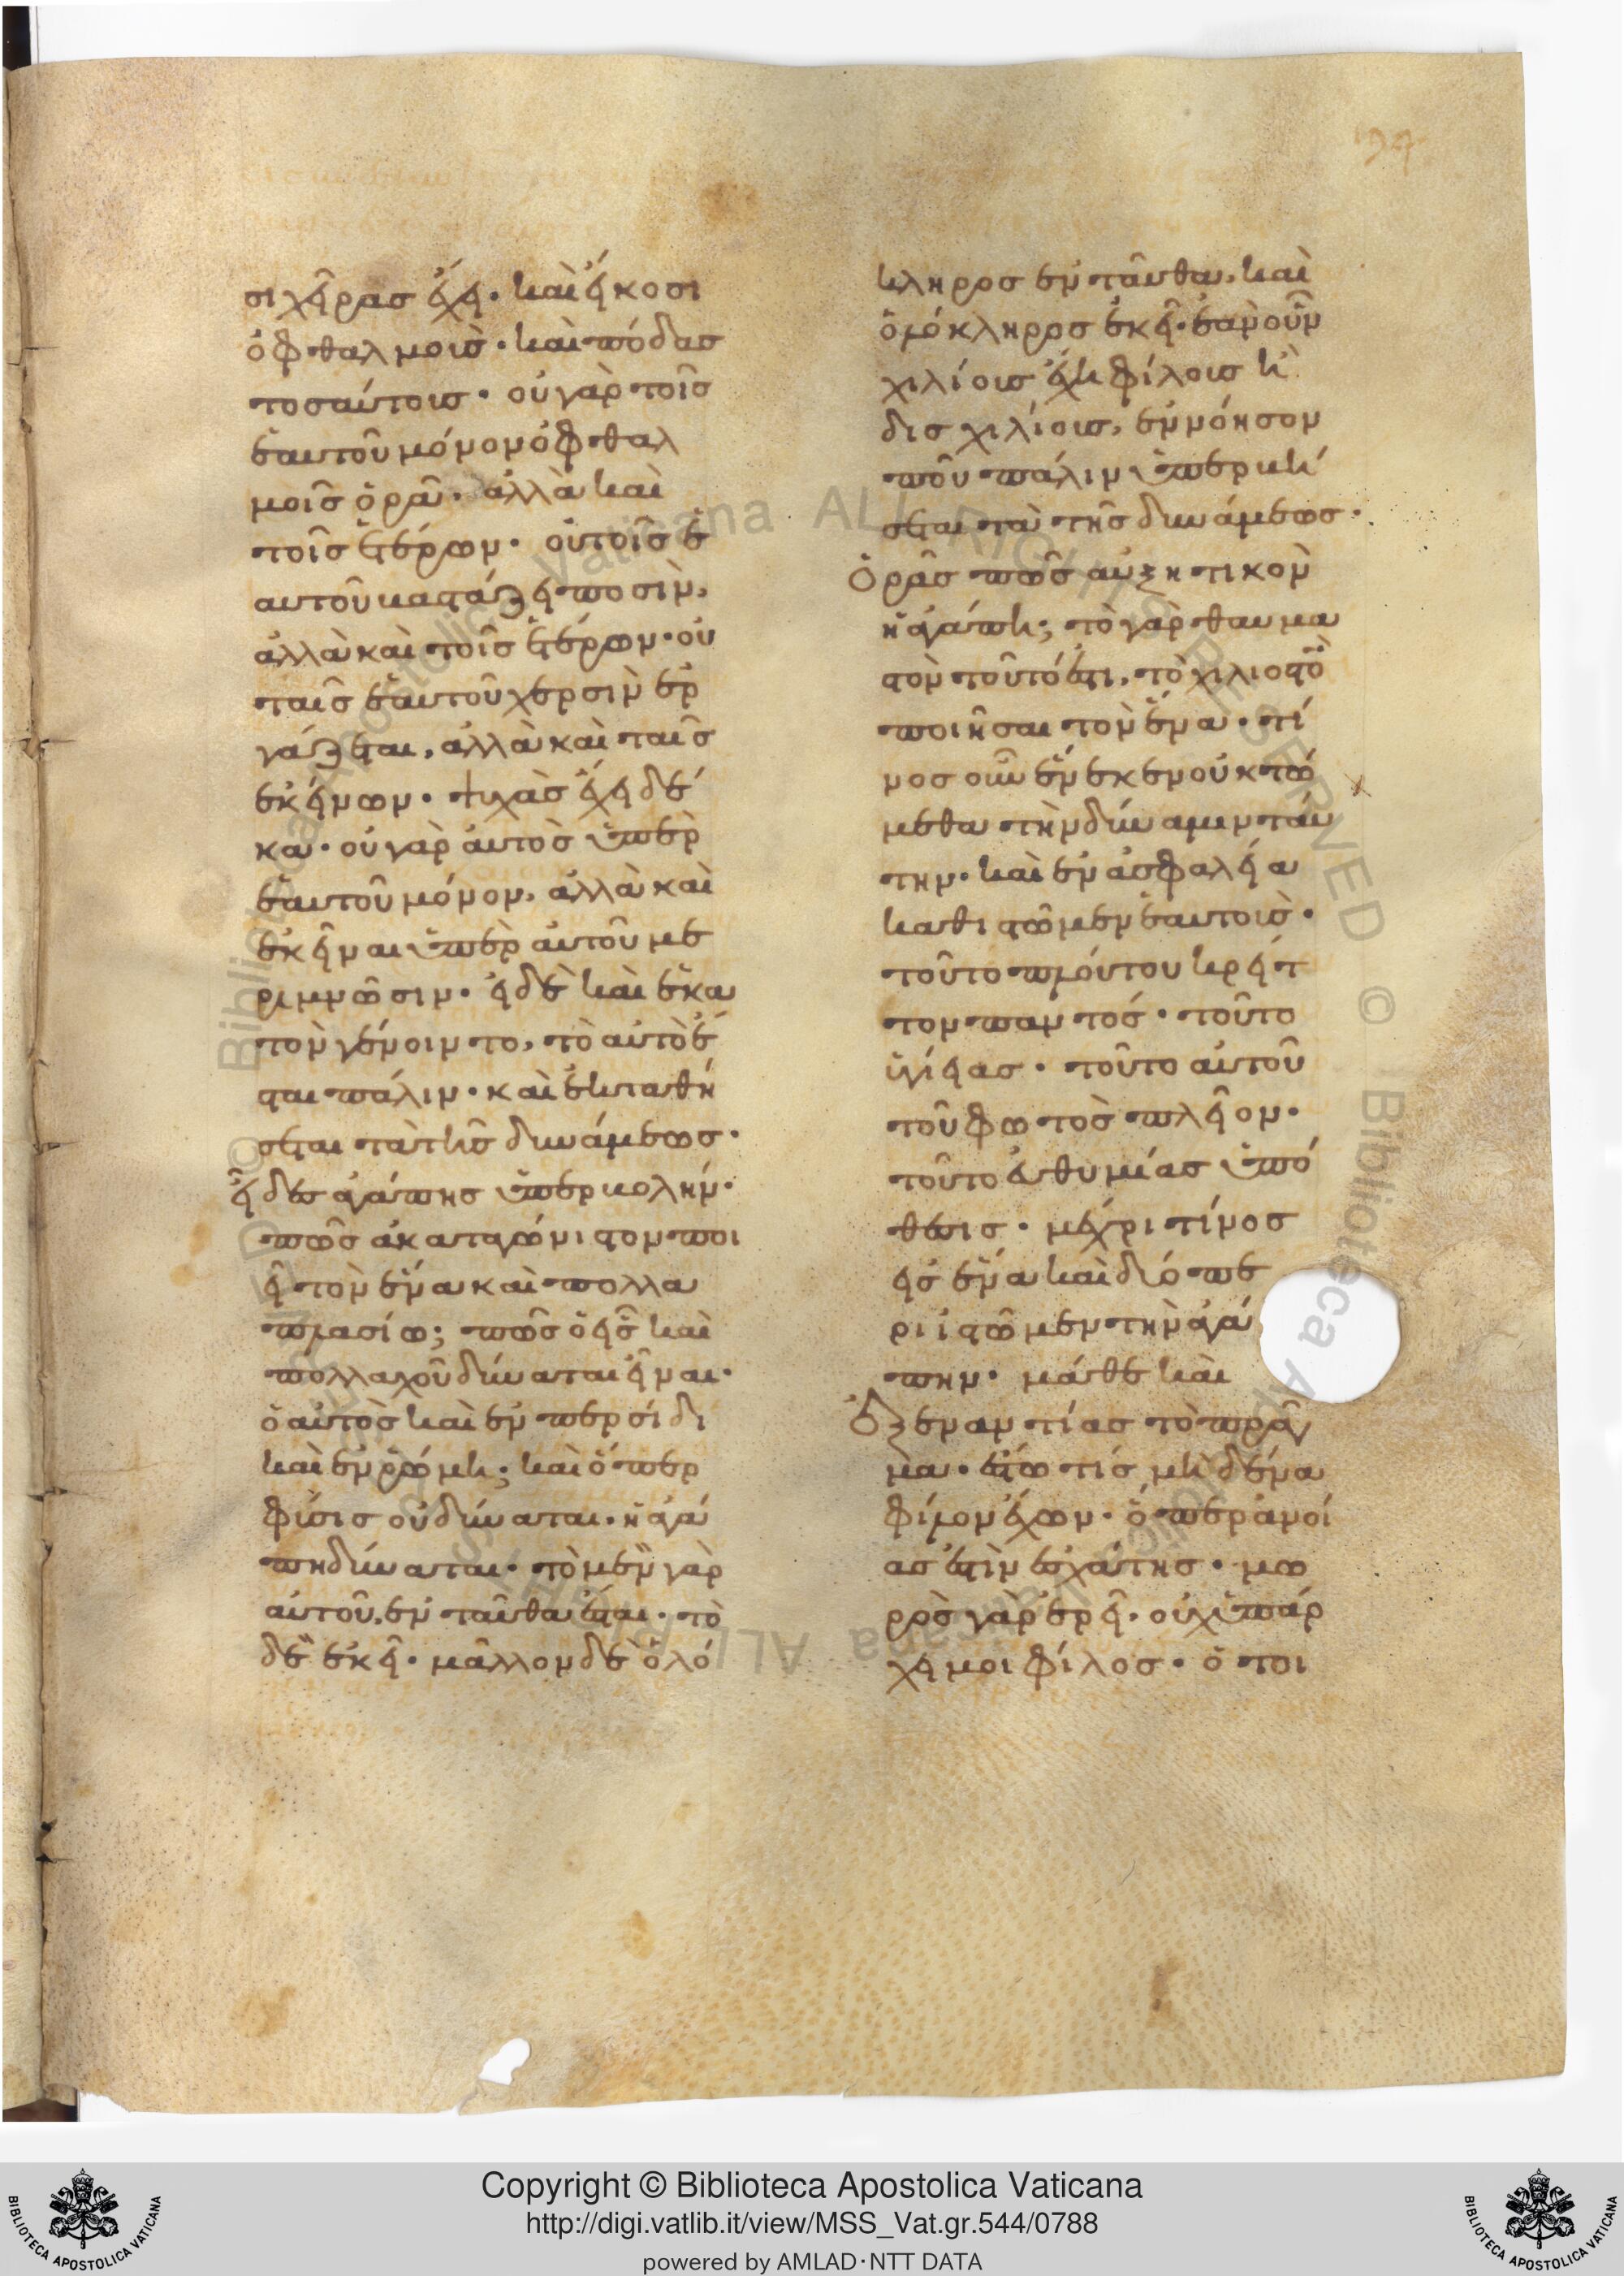 σι χεῖρας ἔχει· καὶ εἴκοσι
ὀφθαλμοὺς· καὶ πόδας
τοσούτους· οὐ γὰρ τοῖς
ἑαυτοῦ μόνον ὀφθαλ
μοῖς ὁρᾶ· ἀλλὰ καὶ
τοῖς ἑτέρων· οὐ τοῖς ἑ
αυτοῦ βαστάζει ποσὶν,
ἀλλὰ καὶ τοῖς ἑτέρων· οὐ
ταῖς ἑαυτοῦ χερσὶν ἐρ
γάζεται, ἀλλὰ καὶ ταῖς
ἐκείνων· ψυχὰς ἔχει δέ
κα· οὐ γὰρ αὐτὸς ὑπὲρ
ἑαυτοῦ μόνον, ἀλλὰ καὶ
ἐκεῖναι ὑπὲρ αὐτοῦ με
ριμνῶσιν· εἰ δὲ καὶ ἑκα
τὸν γένοιντο, τὸ αὐτὸ ἔ
σται πάλιν· καὶ ἐκταθή
σεται τὰ τῆς δυνάμεως·
εἶδες ἀγάπης ὑπερβολήν·
πῶς ἀκαταγώνιστον ποι
εῖ τὸν ἕνα καὶ πολλα
πλασίω; πῶς ὁ εἷς καὶ
πολλαχοῦ δύναται εἶναι·
ὁ αὐτὸς καὶ ἐν περσίδι
καὶ ἐν ῥώμη; καὶ ὅπερ
φύσις οὐ δύναται· ἡ ἀγά
πη δύναται· τὸ μὲν γὰρ
αὐτοῦ, ἐνταῦθα ἔσται· τὸ
δὲ ἐκεῖ· μᾶλλον δὲ ὁλό
κληρος ἐνταῦθα, καὶ
ὁλόκληρος ἐκεῖ· ἐὰν οὖν
χιλίους ἔχη φίλους ἢ
δισχιλίους, ἐννόησον
ποῦ πάλιν ὑπερβή
σεται τὰ τῆς δυνάμεως·
Ὁρᾶς πῶς αὐξητικὸν
ἡ ἀγάπη; τὸ γὰρ θαυμα
στὸν τοῦτό ἐστι, τὸ χιλιοστὸ
ποιῆσαι τὸν ἕνα· τί
νος οὖν ἕνεκεν οὐ κτώ
μεθα τὴν δύναμιν ταύ
την· καὶ ἐν ἀσφαλεία
καθιστῶμεν ἑαυτοὺς·
τοῦτο πλούτου κρεῖτ
τον παντός· τοῦτο
ὑγίειας· τοῦτο αὐτοῦ
τοῦ φωτὸς πλεῖον·
τοῦτο εὐθυμίας ὑπό
θεσις· μέχρι τίνος
εἰς ἕνα καὶ δύο πε
ριϊστῶμεν τὴν ἀγά
πην· μάθε καὶ
ἐξ ἐναντίας τὸ πρᾶγ
μα· ἔστω τίς μὴ δένα
φίλον ἔχων· ὅπερ ἀνοί
ας ἐστὶν ἐσχάτης· μω
ρὸς γὰρ ἐρεῖ· οὐχ ὑπάρ
χει μοι φίλος· ὁ τοι